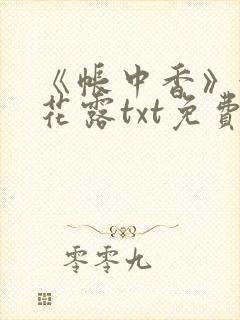 《帐中香》
花露txt免费
零零九